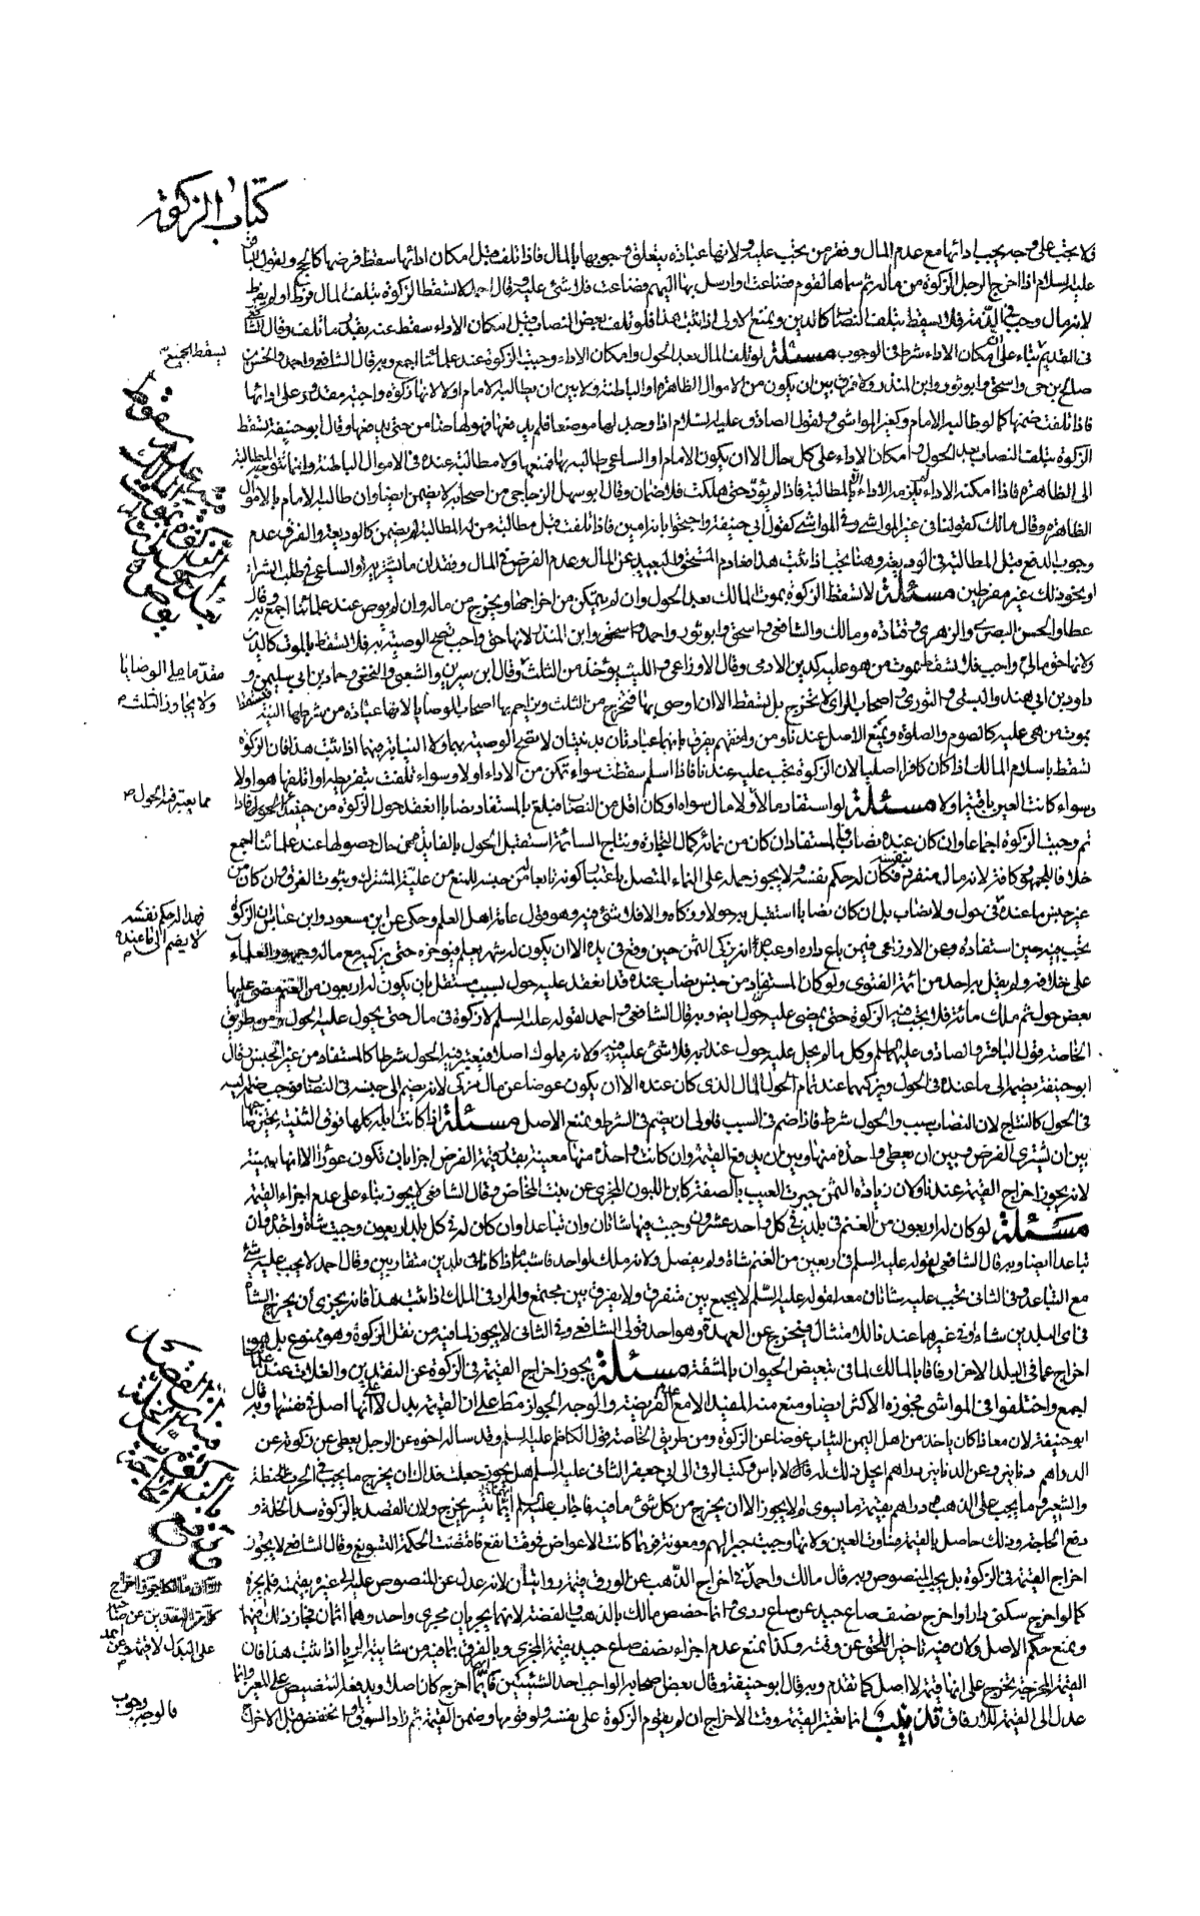 كتاب الزكوة
فلا يجب على وجه يجب ادائها مع عدم المال وفقر من يجب عليه ولانها عبادة يتعلق وجوبها بالمال فاذا تلف قبل امكان ادائها سقط فرضها كالحج ولقول الباقر
عليه السلام اذا اخرج الرجل الزكوة من ماله ثم سماها لقوم فضاعت او ارسل بها اليهم فضاعت فلا شئ عليه وقال احمد لا تسقط الزكوة بتلف المال فرط او لم يفرط
لانه مال وجب في الذمة فلا يسقط بتلف النصاب كالدين ويمنع الاولى اذا ثبت هذا فلو تلف بعض النصاب قبل امكان الاداء سقط عنه بقدر ما تلف وقال الشافعي
في القديم بناء على ان امكان الاداء شرط في الوجوب مسئلة لو تلف المال بعد الحول وامكان الاداء وجبت الزكوة عند علمائنا اجمع وبه قال الشافعي واحمد والحسن بن
يسقط الجميع
صالح بن حي واسحق وابو ثور وابن المنذر ولا فرق بين ان يكون من الاموال الظاهرة او الباطنة ولا بين ان يطالبه الامام او لا لانها زكوة واجبة مقدور على ادائها
فاذا تلفت ضمنها كما لو طالبه الامام وكغير المواشي ولقول الصادق عليه السلام اذا وجد لها موضعا فلم يدفعها فهو لها ضامن حتى يدفعها وقال ابو حنيفة تسقط
الزكوة بتلف النصاب بعد الحول و امكان الاداء على كل حال الا ان يكون الامام او الساعي طالبه بها فمنعها ولا مطالبة عنده في الاموال الباطنة وانما تتوجه المطالبة
الى الظاهرة فاذا امكنه الاداء لم يلزمه الاداء الا بالمطالبة فاذا لم يؤد حتى هلكت فلا ضمان وقال ابو سهل الزجاجي من اصحابه لا يضمن ايضا وان طالبه الامام بالاموال
الظاهرة وقال مالك كقولنا في غير المواشي وفي المواشي كقول ابي حنيفة واحتجوا بانه امين فاذا تلفت قبل مطالبة من له المطالبة لم يضمن كالوديعة والفرق عدم
وجوب الدفع قبل المطالبة في الوديعة وهنا يجب اذا ثبت هذا فعادم المستحق والبعيد عن المال وعدم الفرض في المال وفقدان ما يشتريه او الساعي في طلب الشراء
او نحو ذلك غير مفرطين مسئلة لا تسقط الزكوة بموت المالك بعد الحول وان لم يتمكن من اخراجها ويخرج من ماله وان لم يوص عند علمائنا اجمع وبه قال
عطا والحسن البصري والزهري وقتادة ومالك والشافعي واسحق وابو ثور واحمد وابن المنذر لانها حق واجب تصح الوصية به فلا تسقط بالموت كالدين
ولانها حق مالي واجب فلا تسقط بموت من هو عليه كدين الادمي وقال الاوزاعي والليث يؤخذ من الثلث وقال ابن سيرين والشعبي والنخعي وحماد بن ابي سليمن و
مقدما على الوصايا
ولا يجاوز الثلث
داود بن ابي هند والبستي والثوري واصحاب الراي لا تخرج بل تسقط الا ان اوصى بها فتخرج من الثلث ويزاحم بها اصحاب الوصايا لانها عبادة من شرطها النية فتسقط
بموت من هي عليه كالصوم والصلوة ويمنع الاصل عندنا ومن وافقهم يفرق بانهما عبادتان بدنيتان لا تصح الوصية بهما ولا النيابة فيهما اذا ثبت هذا فان الزكوة
تسقط باسلام المالك اذا كان كافرا اصليا لان الزكوة تجب عليه عندنا فاذا اسلم سقطت سواء تمكن من الاداء او لا وسواء تلفت بتفريطه او اتلفها هو او لا
وسواء كانت العين باقية او لا مسئلة لو استفاد مالا ولا مال سواه او كان اقل من النصاب فبلغ بالمستفاد نصابا انعقد حول الزكوة من حينئذ فاذا
مما يعتبر فيه الحول
تم وجبت الزكوة اجماعا وان كان عنده نصاب فالمستفاد ان كان من نمائه كمال التجارة ونتاج السائمة استقبل الحول بالفايدة من حال حصولها عند علمائنا اجمع
خلافا للجمهور كافة لانه مال منفرد بنفسه فكان له حكم نفسه ولا يجوز حمله على النماء المتصل باعتبار كونه تابعا من جنسه للمنع من علية المشترك وثبوت الفرق وان كان من
غير جنس ما عنده في حول ولا نصاب بل ان كان نصابا استقبل به حولا وزكاه والا فلا شئ فيه وهو قول عامة اهل العلم وحكى عن ابن مسعود وابن عباس ان الزكوة
فهذا له حكم نفسه
لا يضم الى ما عنده
تجب فيه حين استفاده وعن الاوزاعي فيمن باع داره او عبده انه يزكي الثمن حين وقع في يده الا ان يكون له شهر يعلم فيؤخره حتى يزكيه مع ماله وجمهور العلماء
على خلافه ولم يقل به احد من ائمة الفتوى ولو كان المستفاد من جنس نصاب عنده قد انعقد عليه حول لسبب مستقل بان يكون له اربعون من الغنم مضى عليها
بعض حول ثم ملك مائة فلا يجب فيه الزكوة حتى يمضي عليه حول ايضا وبه قال الشافعي واحمد لقوله عليه السلم لا زكوة في مال حتى يحول عليه الحول ومن طريق
الخاصة قول الباقر والصادق عليهما السلم وكل ما لم يحل عليه حول عند ربه فلا شئ عليه فيه ولانه مملوك اصلا فيعتبر فيه الحول شرطا كالمستفاد من غير الجنس وقال
ابو حنيفة يضمه الى ما عنده في الحول ويزكيهما عند تمام الحول المال الذي كان عنده الا ان يكون عوضا عن مال مزكى لانه يضم الى جنسه في النصاب فوجب ضمه اليه
في الحول كالنتاج لان النصاب سبب والحول شرط فاذا ضم في السبب فاولى ان يضم في الشرط ويمنع الاصل مسئلة اذا كانت ابله كلها فوق الثنية تخير صاحبها
بين ان يشتري الفرض وبين ان يعطي واحدة منها وبين ان يدفع القيمة وان كانت واحدة منها معيبة بقدر قيمة الفرض اجزا بان تكون عوراء الا انها سمينة
لانه يجوز اخراج القيمة عندنا ولان زيادة الثمن جبرت العيب بالصفة كابن اللبون المجزي عن بنت المخاض وقال الشافعي لا يجوز بناء على عدم اجزاء القيمة
مسئلة لو كان له اربعون من الغنم في بلدين في كل واحد عشرون وجبت فيها شاتان وان تباعدا وان كان له في كل بلد اربعون وجبت شاة واحدة وان
تباعدا ايضا وبه قال الشافعي لقوله عليه السلم في اربعين من الغنم شاة ولم يفصل ولانه ملك لواحد فاشبه ما اذا كانا في بلدين متقاربين وقال احمد لا يجب عليه شئ
مع التباعد وفي الثاني تجب عليه شاتان معه لقوله عليه السلم لا يجمع بين متفرق ولا يفرق بين مجتمع والمراد في الملك اذا ثبت هذا فانه يجزي ان يخرج الشاة
في اي البلدين شاء او في غيرهما عندنا للامتثال فيخرج عن العهدة وهو احد قولي الشافعي وفي الثاني لا يجوز لما فيه من نقل الزكوة وهو ممنوع بل هو
اخراج عما في البلد الاخر اوفاقا بالمالك لما في تبعيض الحيوان بالمشقة مسئلة يجوز اخراج القيمة في الزكوة عن النقدين والغلات عند علمائنا
اجمع واختلفوا في المواشي فجوزه الاكثر ايضا ومنع منه المفيد الا مع عدم الفريضة والوجه الجواز مط على ان القيمة بدل لا انها اصل في نفسها وبه قال
ابو حنيفة لان معاذا كان ياخذ من اهل اليمن الثياب عوضا عن الزكوة ومن طريق الخاصة قول الكاظم عليه السلم وقد ساله اخوه عن الرجل يعطي عن زكوته عن
الدراهم دنانير وعن الدنانير دراهم ايحل ذلك له قال لا باس وكتب البرقي الى ابي جعفر الثاني عليه السلم هل يجوز جعلت فداك ان يخرج ما يجب في الحرث من الحنطة
والشعير وما يجب على الذهب دراهم بقيمة ما يسوى ام لا يجوز الا ان يخرج من كل شئ ما فيه فاجاب عليه السلم ايما تيسر يخرج ولان القصد بالزكوة سد الخلة و
دفع الحاجة وذلك حاصل بالقيمة فساوت العين ولانها وجبت جبرا لهم ومعونة فربما كانت الاعواض في وقت انفع فاقتضت الحكمة التسويغ وقال الشافعي لا يجوز
اخراج القيمة في الزكوة بل يجب المنصوص وبه قال مالك واحمد في اخراج الذهب عن الورق فيهما روايتان لانه عدل عن المنصوص عليه الى غيره بقيمته فلم يجزه
كما لو اخرج سكنى دار او اخرج نصف صاع جيد عن صاع ردي وانما خصص مالك بالذهب والفضة لانهما يجريان مجرى واحد وهما اثمان فجاز ذلك فيهما
الا ان مالكا جوز اخراج
كل من النقدين عن صاحبه
على البدل لا قيمة وعن احمد
ويمنع حكم الاصل ولان فيه تاخير الحق عن وقته وكذا يمنع عدم اجزاء نصف صاع جيد بقيمة المجزي وبالفرق بما فيه من شائبة الربا اذا ثبت هذا فان
القيمة المخرجة تخرج على انها قيمة لا اصل كما تقدم وبه قال ابو حنيفة وقال بعض اصحابه الواجب احد الشيئين فايهما اخرج كان اصلا ويدفعه التنصيص على المعين وانما
عدل الى القيمة للارفاق تذنيب انما تعتبر القيمة وقت الاخراج ان لم يقوم الزكوة على نفسه ولو قومها وضمن القيمة ثم زاد السوق او انخفض قبل الاخراج
فالوجه وجوب